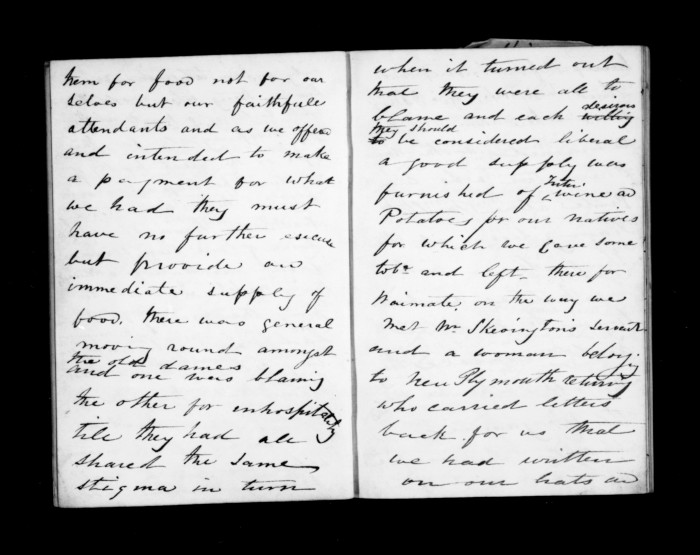 them for food not for our
selves but our faithfull
attendants and as we offered
and intended to make
a payment for what
we had they must
have no further excuse
but provide an
immediate supply of
food. There was general
moving round amongst
the old dames
and one was blaming
the other for inhospitality
till they had all
shared the same
stigma in turn
when it turned out
that they were all to
blame and each willing desirous
they should
to be considered liberal
a good supply was
furnished of wine and
Potatoes for our natives
for which we gave some
tobo. and left there for
Waimate. on the way we
met Mr Skevington's servant
and a woman belong-
ing
to New Plymouth returning
who carried letters
back for us that
we had written
on our hats and